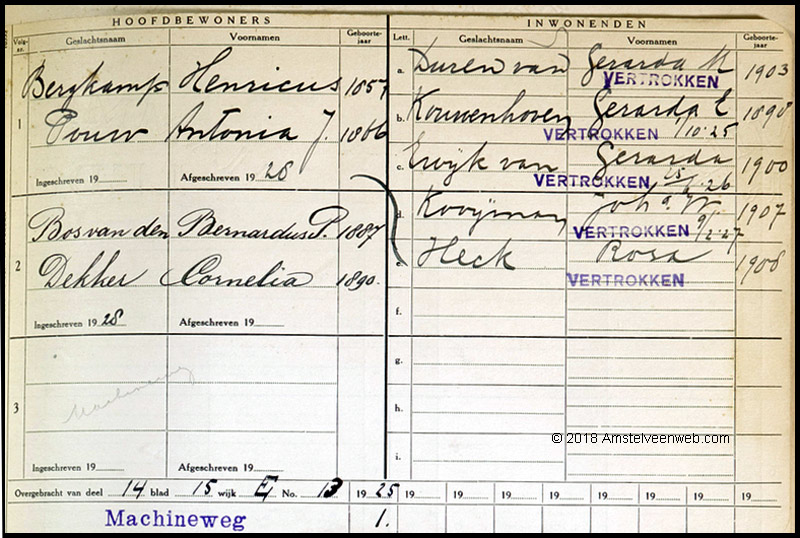 HOOFDBEWONERS
Volg-nr. Geslachtsnaam Voornamen Geboorte-jaar
1 Bergkamp Henricus 1857
Pouw Antonia J. 1866
Ingeschreven 19 Afgeschreven 19 28
2 Bos van den Bernardus P. 1887
Dekker Cornelia 1890.
Ingeschreven 19 28 Afgeschreven 19
3 Machineweg
Ingeschreven 19 Afgeschreven 19
INWONENDEN
Lett. Geslachtsnaam Voornamen Geboorte-jaar
a. Duren van Gerarda M 1903
VERTROKKEN
b. Kouwenhoven Gerarda E 1898
VERTROKKEN /10.25
c. Ewijk van Gerarda 1900
VERTROKKEN 26
d. Kooijman Joh 1907
VERTROKKEN 9/2.27
e. Heck Rosa 1908
VERTROKKEN
f.
g.
h.
i.
© 2018 Amstelveenweb.com
Overgebracht van deel 14 blad 15 wijk E No. 13 19 25 19 19 19 19 19 19 19 19
Machineweg 1.